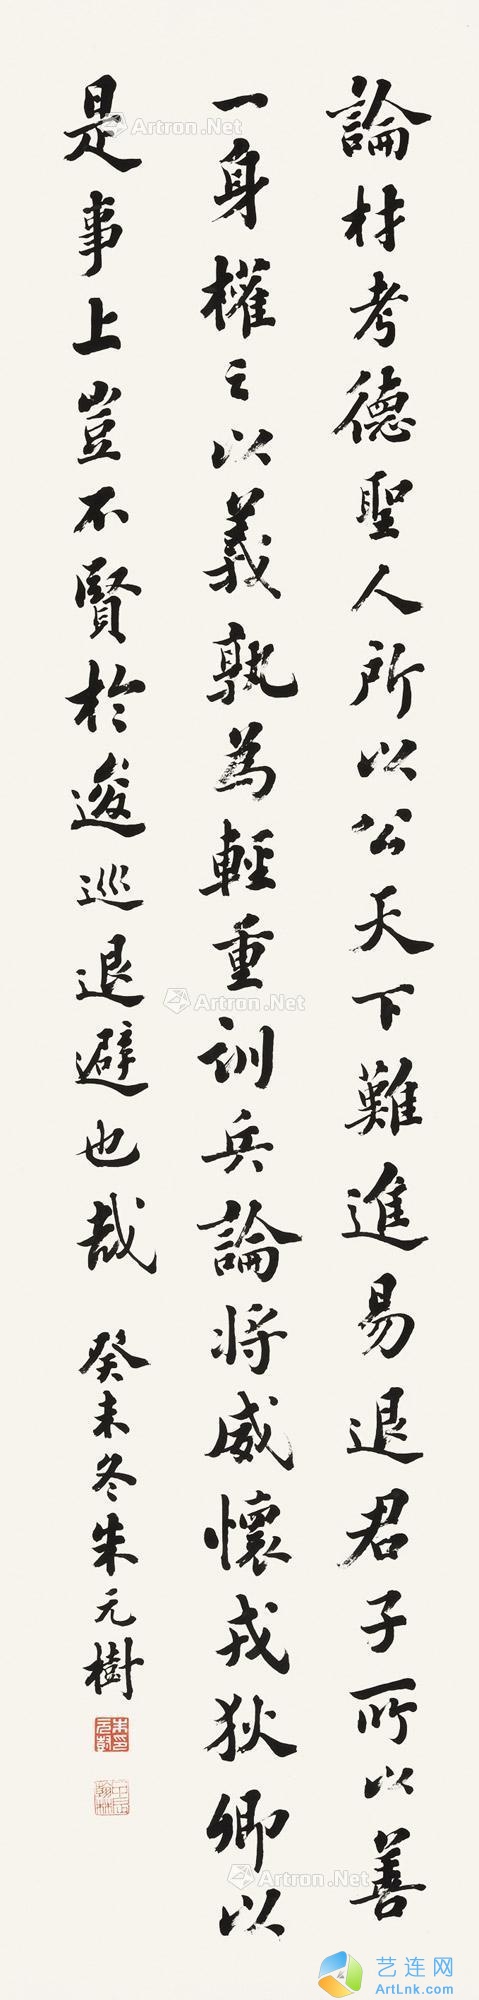 論材考德聖人所以公天下難進易退君子所以善
一身權之以義孰為輕重訓兵論將威懷戎狄卿以
是事上豈不賢於逡巡退避也哉
癸未冬朱元樹
Artron.Net
Artron.Net
Artron.Net
Artron.Net
Artron.Net
Artron.Net
艺连网
ArtLnk.com